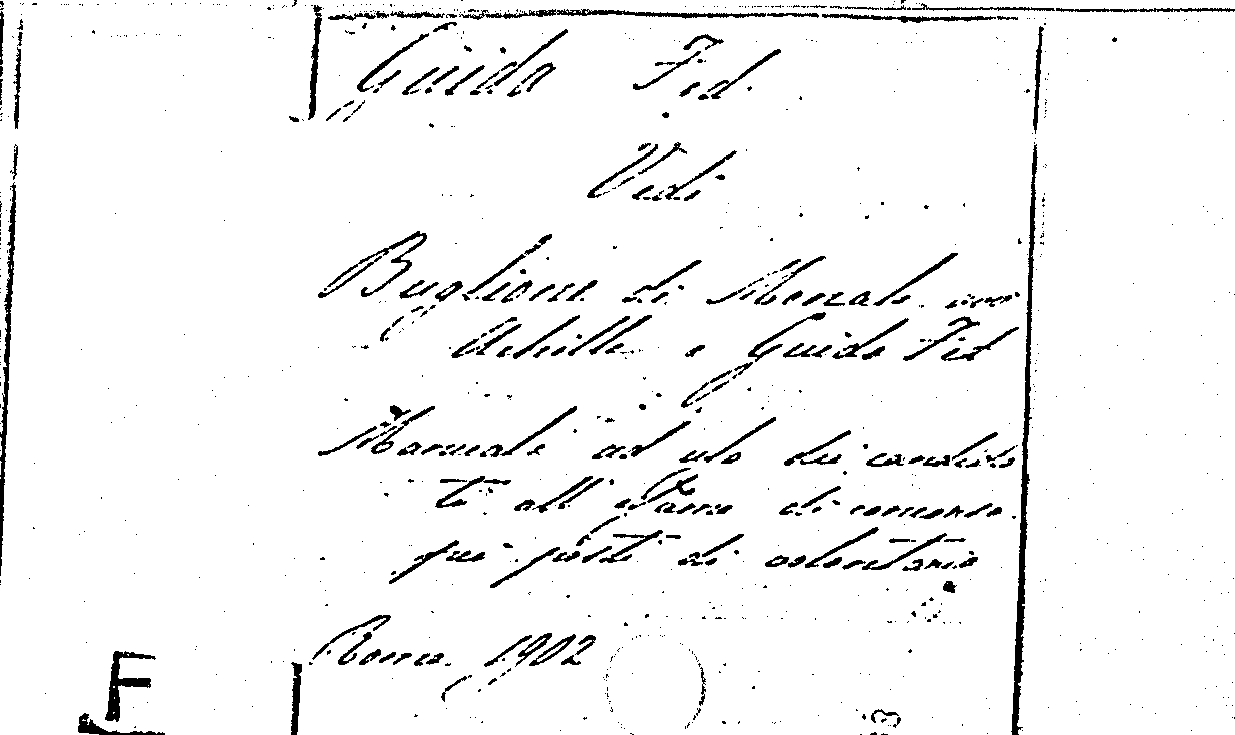 Guida Fed.
Vedi
Buglione di Monale avv
Achille e Guida Fed
Manuale ad uso dei candida
ti all'esame di concorso
pei posti di volontario
Roma 1902
F